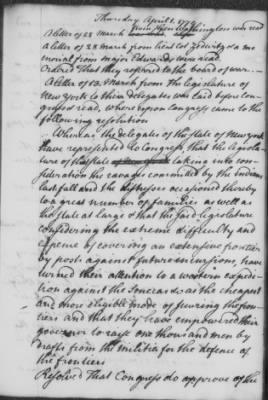 Thursday April 1. 1779
A letter of 28 March from Gen Washington was read
A letter of 28 March from lieut col and a me
morial from major Edwards were read.
Ordered That they be referred to the board of war.
A letter of 13 March from the legislature of
New York to their delegates was laid before con
gress & read, whereupon Congress came to the
following resolution
Whereas the delegates of the state of New york
have represented to Congress, that the legisla
ture of that state taking into con
sideration the ravages committed by the Indians
last fall and the distresses occasioned thereby
to a great number of families as well as
the state at large & that the said legislature
considering the extreme difficulty and
expence by covering an extensive frontier
by posts against future incursions, have
turned their attention to a western expedi
tion against the Senecas &c as the cheapest
and more eligible mode of securing the fron
tiers and that they have empowered their
governor to raise one thousand men by
drafts from the militia for the defence of
the frontiers
Resolved That Congress do approve of the